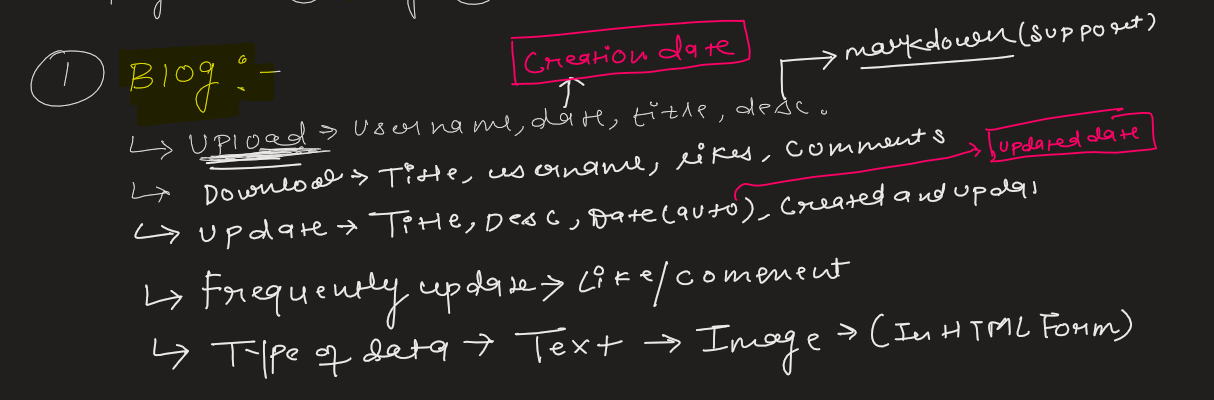 ① Blog :-
Creation date
→ markdown (support)
↳ Upload → Username, date, title, desc.
↳ Download → Title, username, likes, comments
→ updated date
↳ update → Title, Desc, Date (auto), created and updat
↳ Frequently update → Like/comment
↳ Type of data → Text → Image → (In HTML Form)